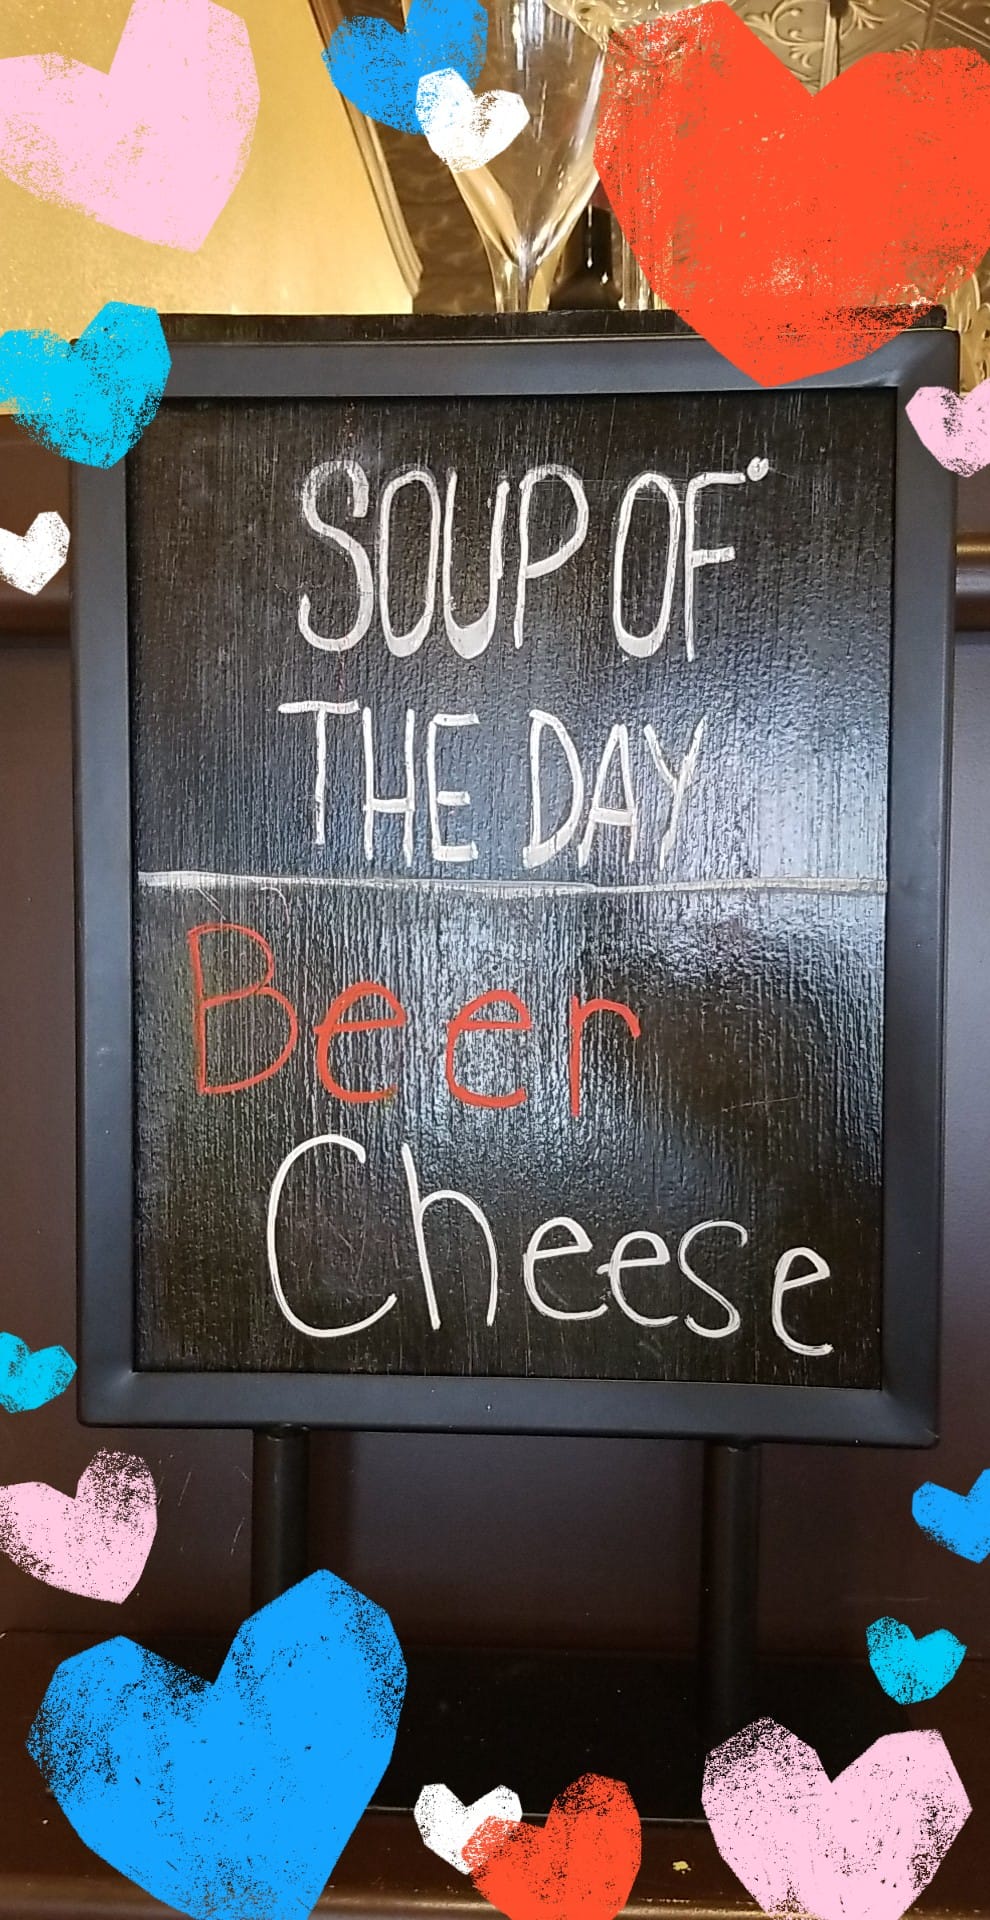 SOUP OF
THE DAY
Beer
Cheese